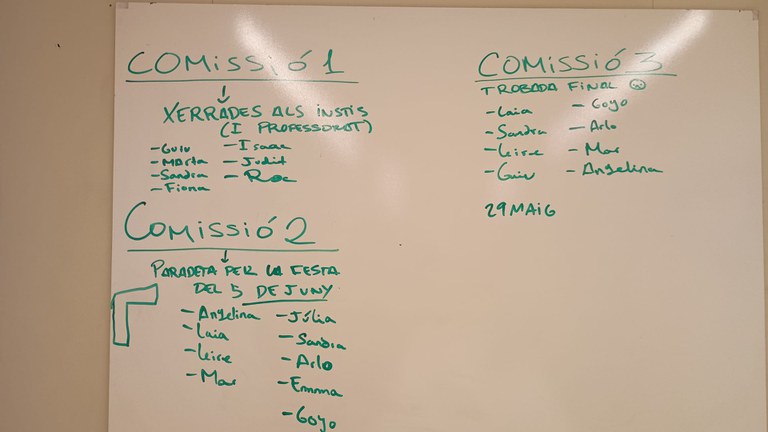 COMISSIÓ 1
XERRADES ALS INSTIS
(I PROFESSORAT)
- Guiu
- Marta
- Sandra
- Fiona
- Isaac
- Judit
- Roc
COMISSIÓ 2
PARADETA PER LA FESTA
DEL 5 DE JUNY
- Angelina
- Laia
- Leire
- Mar
- Júlia
- Sandra
- Arlo
- Emma
- Goyo
COMISSIÓ 3
TROBADA FINAL
- Laia
- Sandra
- Leire
- Guiu
- Goyo
- Arlo
- Mar
- Angelina
29 MAIG